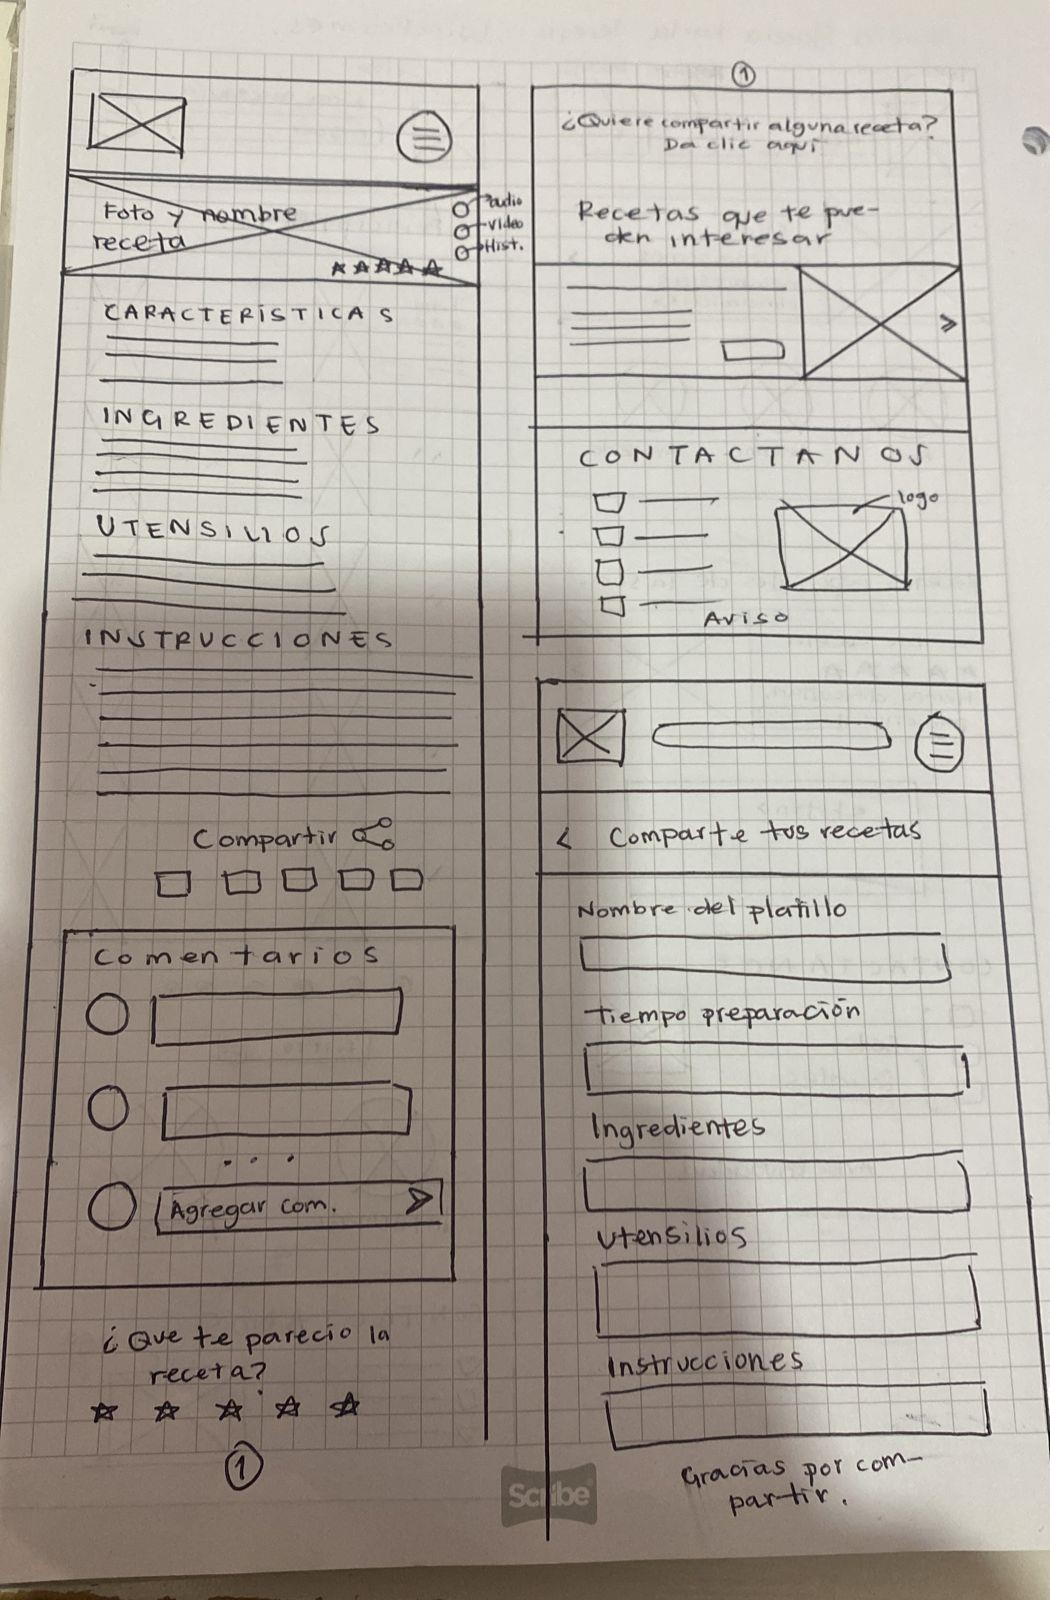 Foto y nombre
receta
audio
video
Hist.
CARACTERÍSTICAS
INGREDIENTES
UTENSILIOS
INSTRUCCIONES
Compartir
Comentarios
...
Agregar com.
¿Que te parecio la
receta?
1
1
¿Quiere compartir alguna receta?
Da clic aquí
Recetas que te pue-
den interesar
CONTACTANOS
logo
Aviso
Comparte tus recetas
Nombre del platillo
Tiempo preparación
Ingredientes
Utensilios
Instrucciones
Gracias por com-
partir.
Scribe